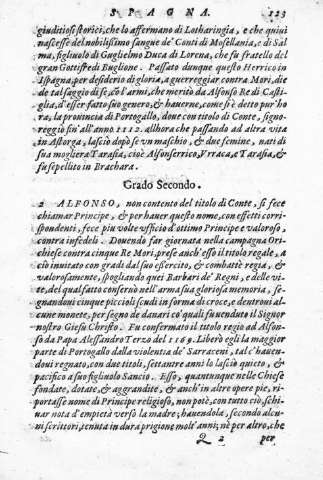 SPAGNA. 123
giuditiosi storici, che lo affermano di Lotharingia, e che quiui
nascesse del nobilissimo sangue de' Conti di Mosellania, e di Sal
ma, figliuolo di Guglielmo Duca di Lorena, che fu fratello del
gran Gottifredi Buglione. Passato dunque questo Herrico in
Ispagna, per desiderio di gloria, a guerreggiar contra Mori, die
de tal saggio di se, & d'armi, che meritò da Alfonso Re di Casti-
glia, d'esser fatto suo genero, & hauerne, come s'è detto pur ho
ra, la prouincia di Portogallo, doue con titolo di Conte, signo-
reggiò fin' all'anno 1112. allhora che passando ad altra vita
in Astorga, lasciò dopò se vn maschio, & due femine, nati di
sua mogliera Tarasia, cioè Alfonserrico, Vrraca, e Tarasia, &
fu sepellito in Brachara.
Grado Secondo.
2 ALFONSO, non contento del titolo di Conte, si fece
chiamar Principe, & per hauer questo nome, con effetti corri
spondenti, fece più volte vfficio d'ottimo Principe e valoroso,
contra infedeli. Douendo far giornata nella campagna Ori-
chiese contra cinque Re Mori, prese anch' esso il titolo regale, a
ciò inuitato con gradi dal suo essercito, & combattè regia, &
valorosamente, spogliando quei Barbari de' Regni, e delle vi-
te, del qual fatto conseruò nell'arma sua gloriosa memoria, se-
gnandoui cinque piccioli scudi in forma di croce, e dentroui al-
cune monete, per segno de danari co' quali fu venduto il Signor
nostro Giesu Christo. Fu confermato il titolo regio ad Alfon-
so da Papa Alessandro Terzo del 1169. Liberò egli la maggior
parte di Portogallo dalla violentia de' Sarraceni, tal c'hauen-
doui regnato, con due titoli, settanta anni lo lasciò quieto, &
pacifico a suo figliuolo Sancio. Esso, quantunque nelle Chiese
fondate, dotate, & aggrandite, & anch' in altre opere pie, ri-
portasse nome di Principe religioso, non potè, con tutto ciò, schi-
uar nota d'empietà verso la madre; hauendola, secondo alcu-
ni scrittori, tenuta in dura prigione molt' anni; nè per altro, che
Q 2 per